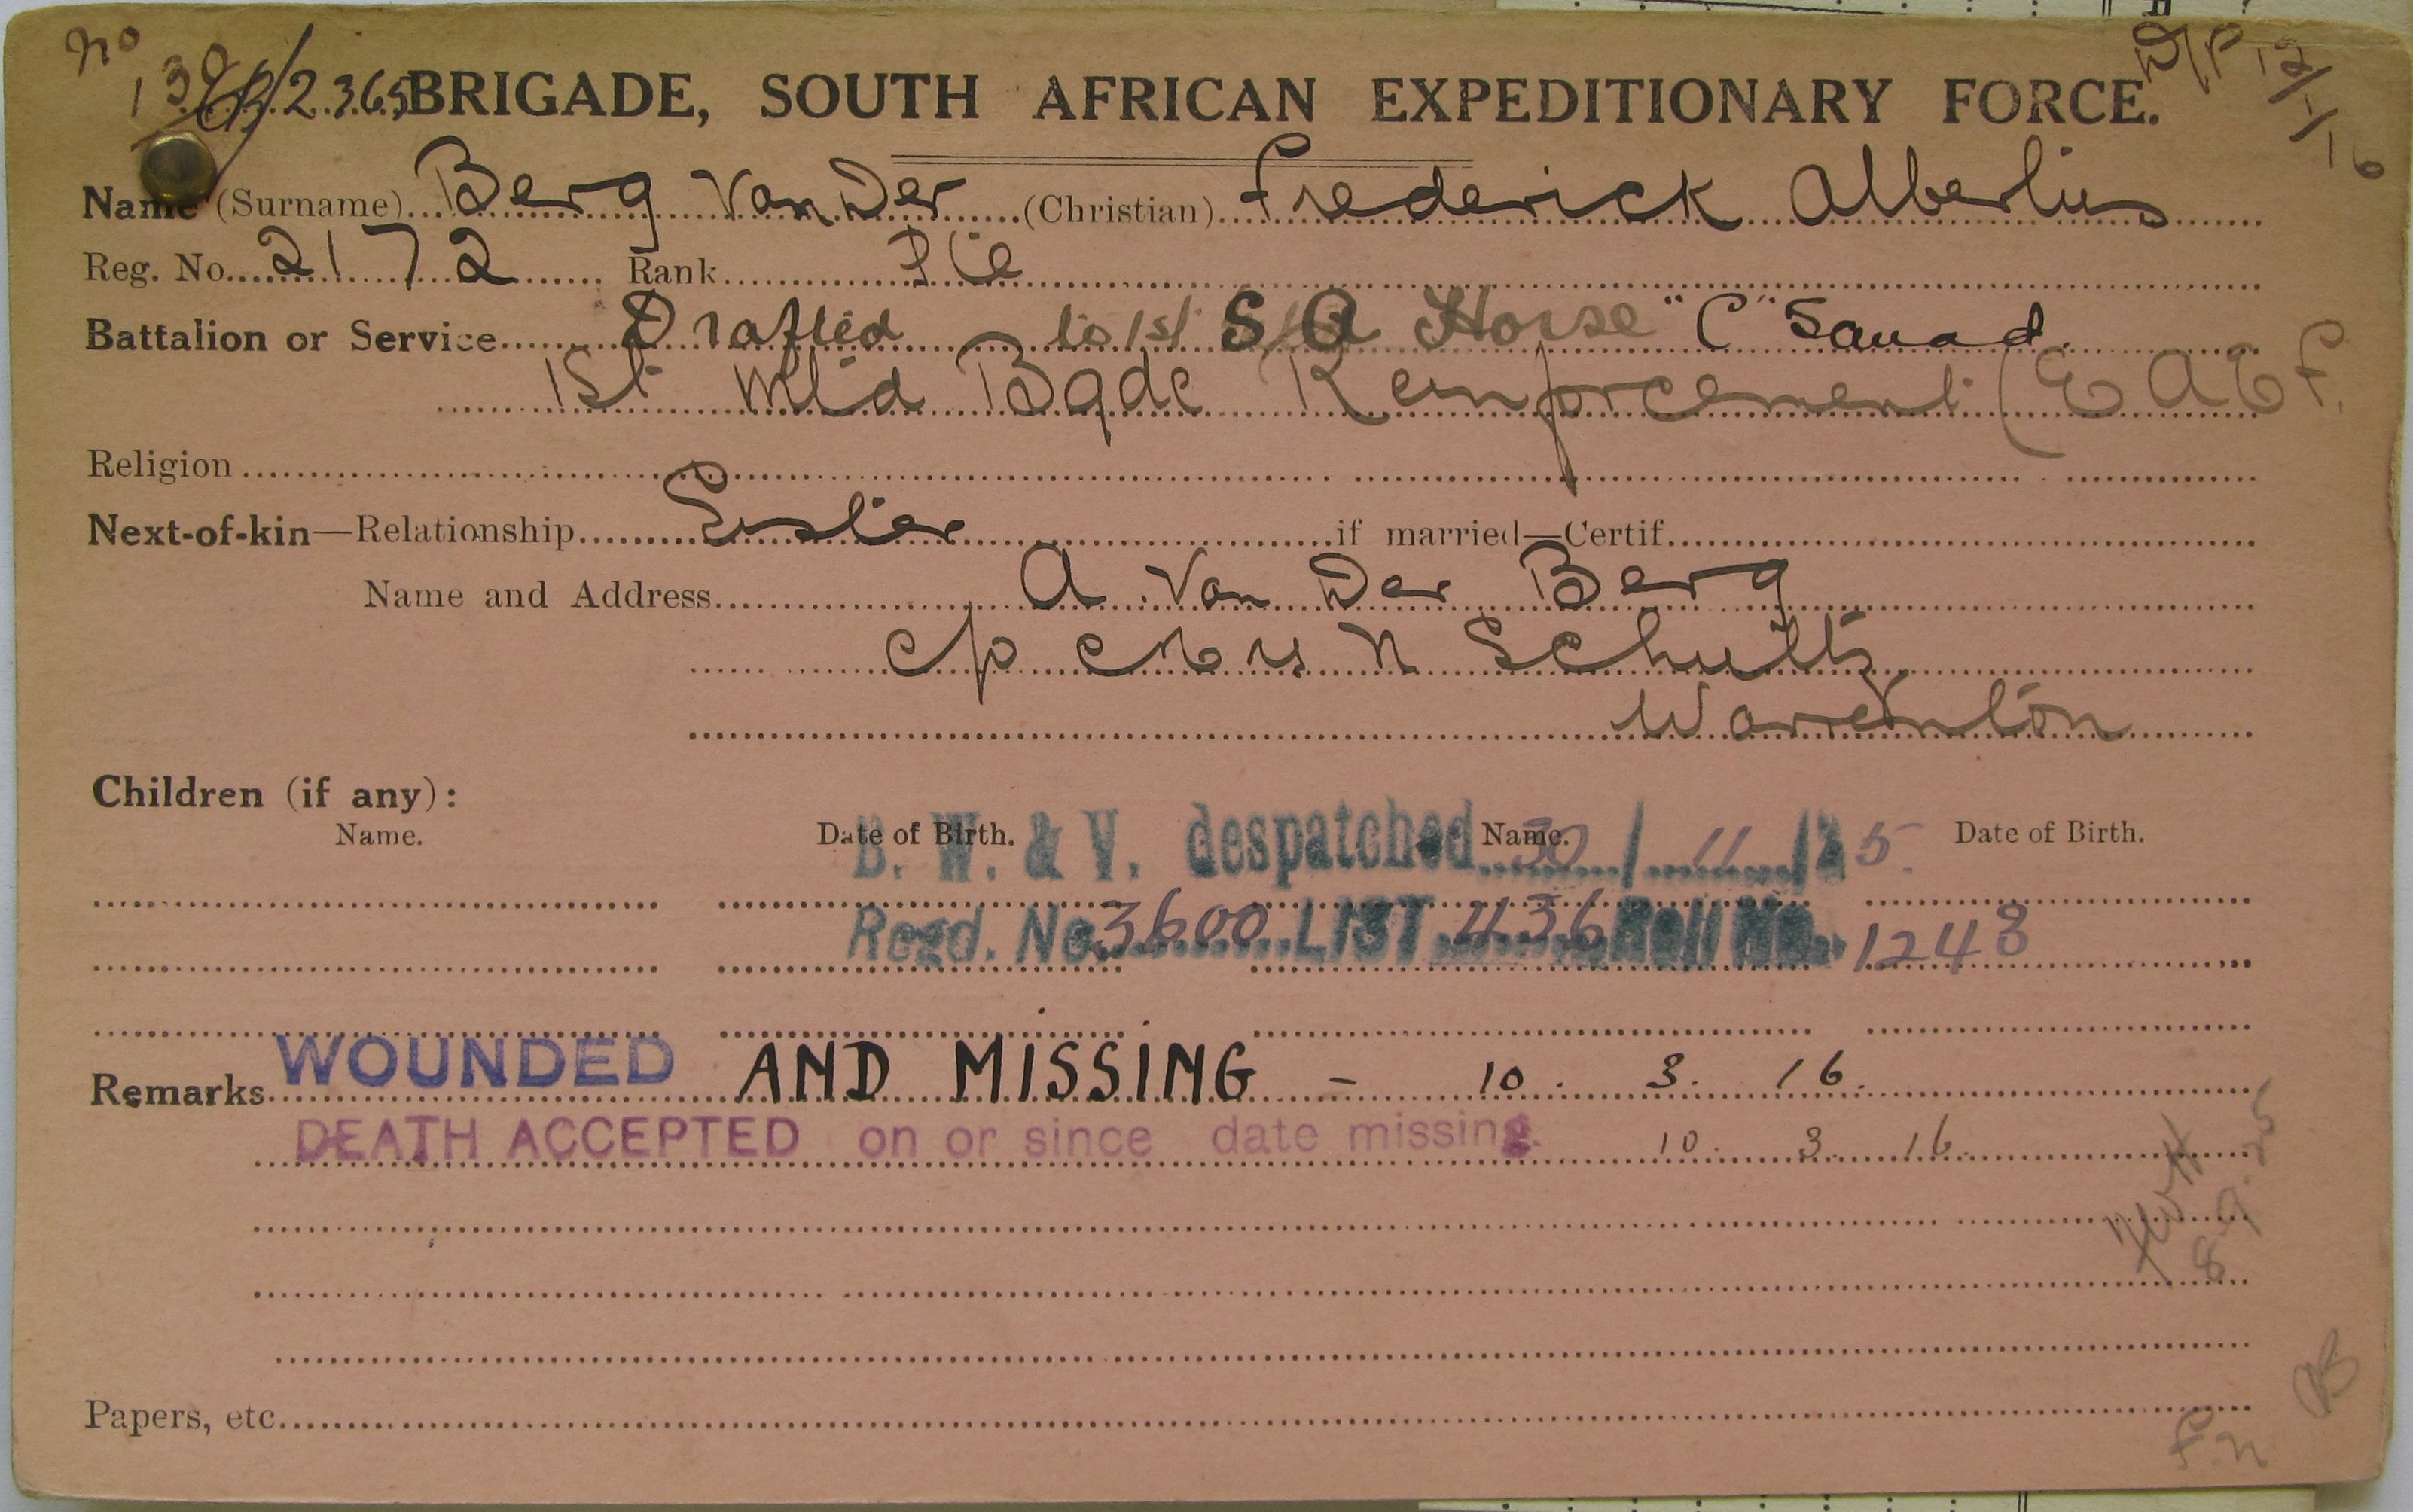 No
BRIGADE, SOUTH AFRICAN EXPEDITIONARY FORCE.
12/1/16
Name (Surname) Berg Van Der (Christian) Frederick Albertus
Reg. No. 2172 Rank Pte
Battalion or Service Drafted to 1st S A Horse "C" Squad.
1st Mt'd Bgde Reinforcement (E A E F.
Religion
Next-of-kin—Relationship Sister if married—Certif.
Name and Address A. Van Der Berg
c/o Mrs N Schultz
Warrenton
Children (if any):
Name. Date of Birth. Name. Date of Birth.
B. W. & V. despatched 30 / 11 / 25.
Regd. No. 3600 LIST 436 Roll No. 1248
Remarks WOUNDED AND MISSING - 10. 3. 16.
DEATH ACCEPTED on or since date missing. 10. 3. 16.
8 9.25
Papers, etc.
F.N.